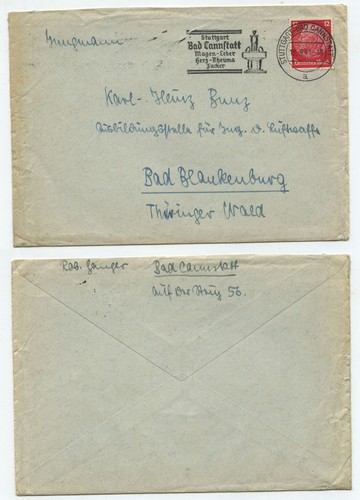 Jungmann
Stuttgart
Bad Cannstatt
Magen-Leber
Herz-Rheuma
Zucker
STUTTGART-BAD CANNSTATT
a
12
12
Karl-Heinz Bunz
Ausbildungsstelle für Ing. d. Luftwaffe
Bad Blankenburg
Thüringer Wald
Bad Cannstatt
Auf der Steig 56.